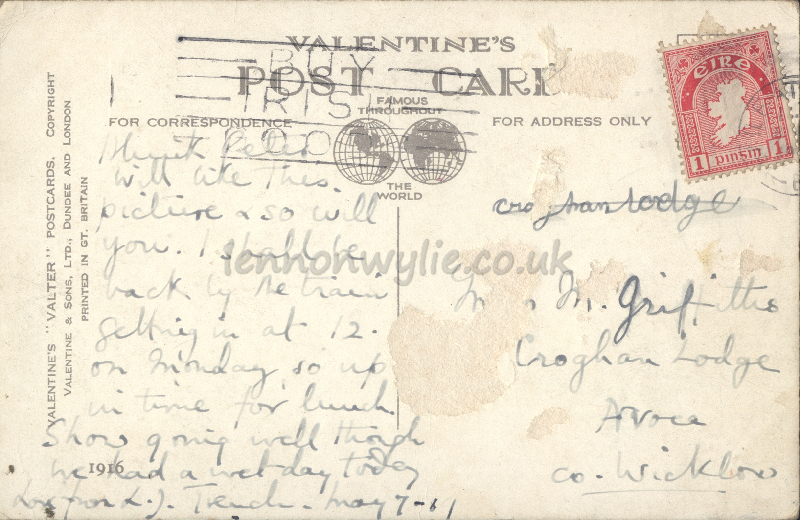 VALENTINE'S
POST CARD
BUY
IRISH
GOODS
FAMOUS
THROUGHOUT
THE
WORLD
FOR CORRESPONDENCE
FOR ADDRESS ONLY
EIRE
1 PINSIN 1
VALENTINE'S "VALTER" POSTCARDS. COPYRIGHT
VALENTINE & SONS, LTD., DUNDEE AND LONDON
PRINTED IN GT. BRITAIN
I think Peter
will like this
picture & so will
you. I shall be
back by the train
getting in at 12.
on Monday, so up
in time for lunch.
Show going well though
we had a wet day today
Love from L. J. Trench. May 7
1916
Croghan Lodge
M. Griffiths
Croghan Lodge
Avoca
Co. Wicklow
lennonwylie.co.uk